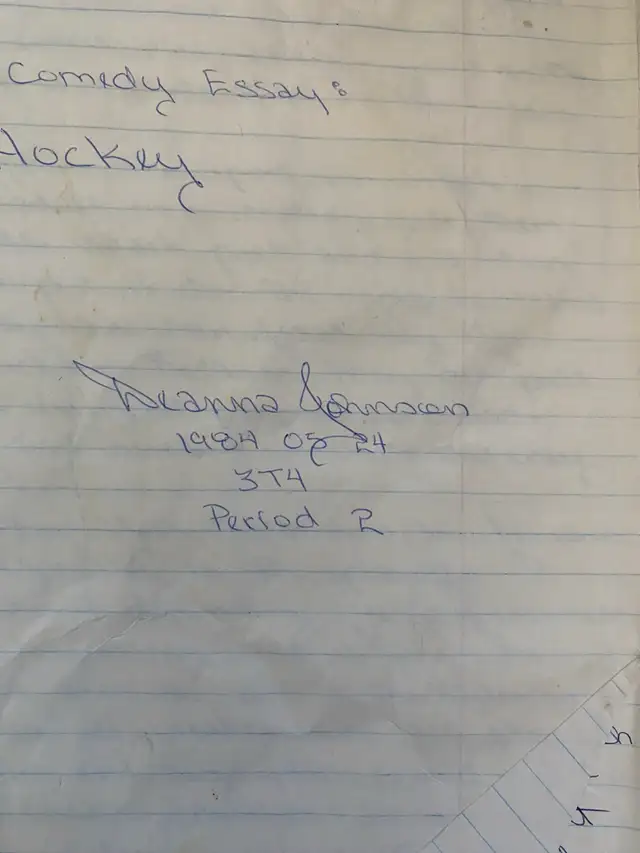 Comedy Essay:
Hockey
Deanna Johnson
1984 05 24
3T4
Period 2